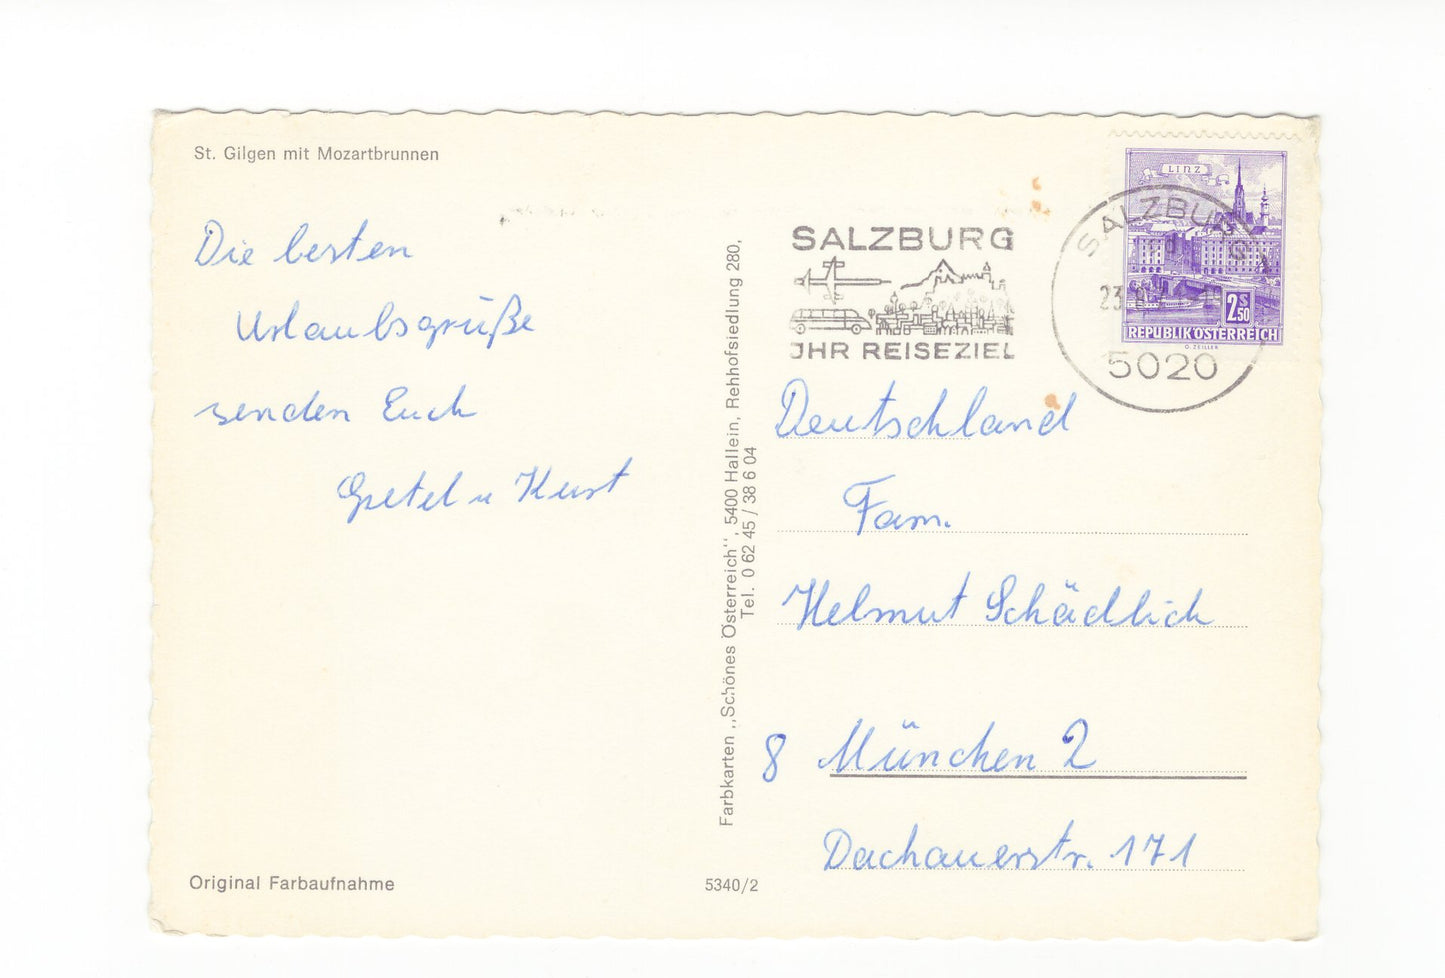 St. Gilgen mit Mozartbrunnen
Die besten
Urlaubsgrüße
senden Euch
Gretel u Kurt
Original Farbaufnahme
5340/2
Farbkarten „Schönes Österreich", 5400 Hallein, Rehhofsiedlung 280,
Tel. 0 62 45 / 38 6 04
SALZBURG
JHR REISEZIEL
SALZBURG
23.
5020
LINZ
2 S 50
REPUBLIK ÖSTERREICH
O. ZEILLER
Deutschland
Fam.
Helmut Schädlich
8 München 2
Dachauerstr. 171